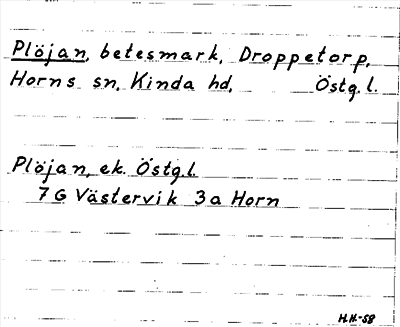 Plöjan, betesmark, Droppetorp,
Horns sn, Kinda hd, Östg.l.
Plöjan, ek. Östg.l.
7G Västervik 3a Horn
H.H.-58